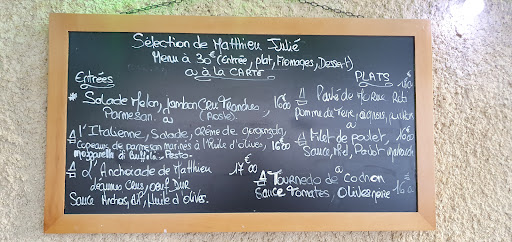 Sélection de Matthieu Julié
Menu à 30€ (Entrée, plat, Fromages, Dessert)
ou à la CARTE
Entrées
* Salade Melon, Jambon Cru Tranches, 16€00
Parmesan.
l'Italienne, Salade, crème de gorgonzola,
Copeaux de parmesan marinés à l'Huile d'olives, 16€00
mozzarella di Buffala - Pesto.
L'Anchoïade de Matthieu 17€00
légumes Crus, oeuf Dur
Sauce Anchois, Ail, Huile d'olives.
PLATS
Pavé de Morue Roti
pomme de Terre, oignons,
Filet de poulet, 16€00
Sauce, Miel, Poulet
Tournedo de Cochon
Sauce Tomates, Olives noire 16€